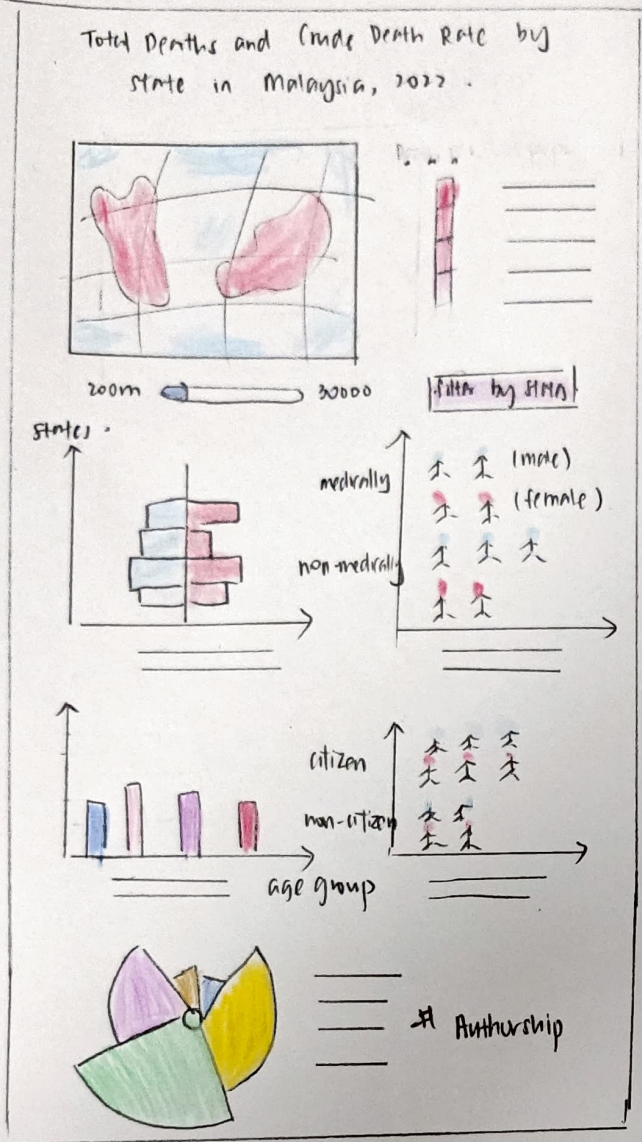 Total Deaths and Crude Death Rate by
state in Malaysia, 2022.
200m
30000
filter by
states.
medically
(male)
(female)
non-medically
citizen
non-citizen
age group
# Authorship